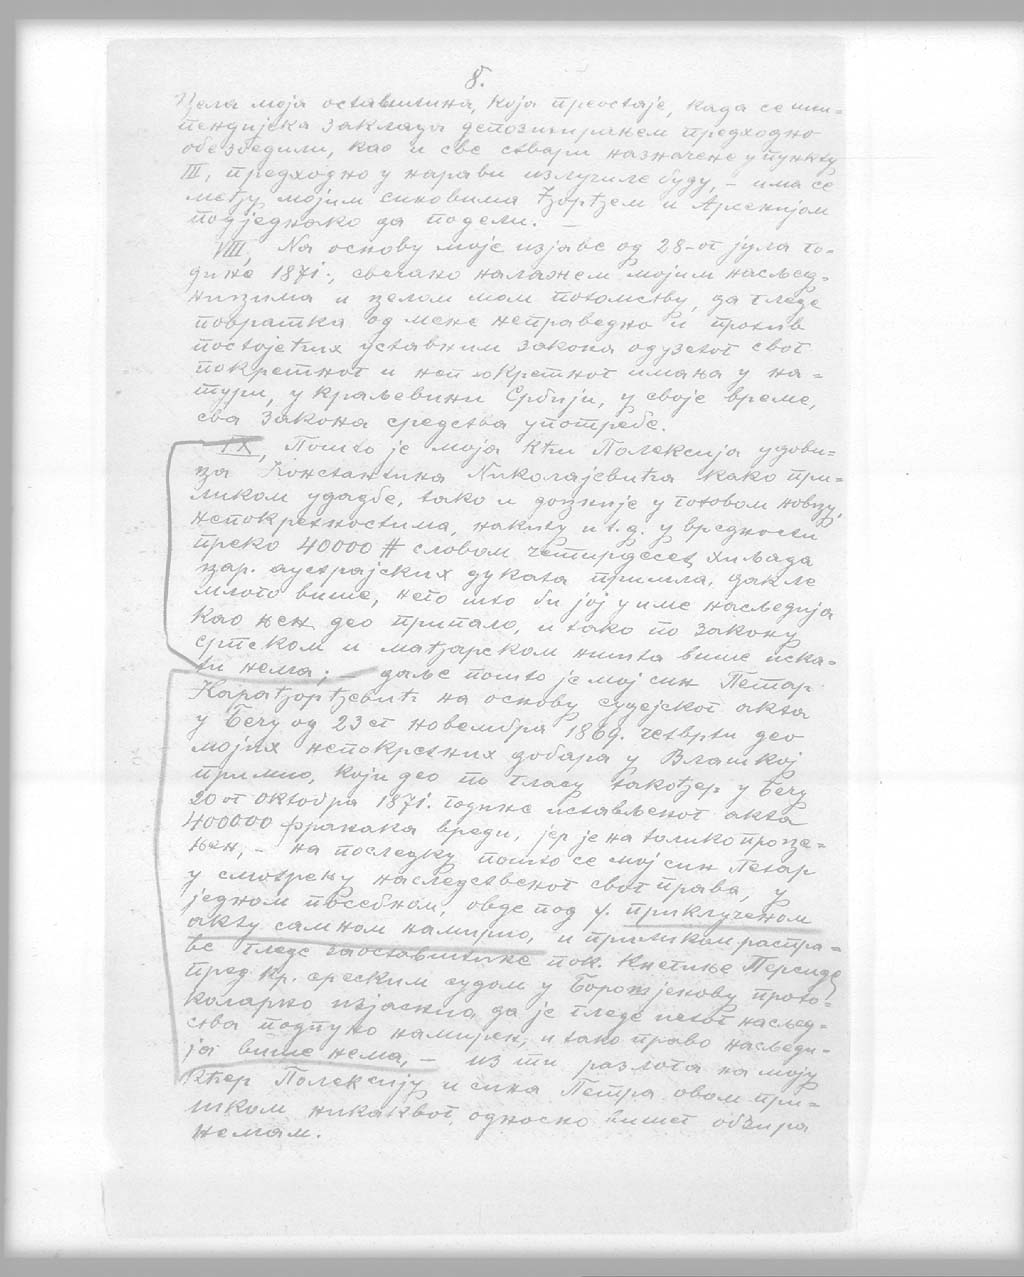 8.
Цела моја оставштина, која преостаје, када се шти-
пендијска заклада депозитирањем предходно
обезбедили, као и све ствари назначене у пункту
III, предходно у нарави излучиле буду, – има се
међу мојим синовима Ђорђем и Арсенијом
подједнако да подели. –
VIII, На основу моје изјаве од 28-ог јула го-
дине 1871., свечано налажем мојим насљед-
ницима и целом мом потомству, да гледе
повратка од мене неправедно и против
постојећих уставним закона одузетог свог
покретног и непокретног имања у на-
тури, у краљевини Србији, у своје време,
сва закона средства употребе.
IX, Пошто је моја кћи Полексија удови-
ца Константина Николајевића како при-
ликом удадбе, тако и доцније у готовом новцу,
непокретностима, накиту и т. д. у вредности
преко 40000 # словом четирдесет хиљада
цар. аустрајских дуката примила, дакле
много више, него што би јој у име насљедија
као њен део припало, и тако по закону
српском и мађарском ништа више иска-
ти нема; – даље пошто је мој син Петар
Карађорђевић на основу судејског акта
у Бечу од 23 ег новембра 1869. четврти део
мојих непокретних добара у Влашкој
примио, који део по гласу такођер у Бечу
20 ог октобра 1871. године истављеног акта
400000 франака вреди, јер је на толико проце-
њен, – на последку пошто се мој син Петар
у смотрењу наследственог свог права, у
једном посебном, овде под ·/. прикљученом
акту самном намирио, и приликом распра-
ве гледе заоставштине пок. Књегиње Персиде
пред кр. среским судом у Борошјенову прото-
коларно изјаснио да је гледе истог насљед-
ства подпуно намирен, и тако право насљеди-
ја више нема, – из ти разлога на моју
кћер Полексију и сина Петра овом при-
ликом никаквог, односно вишег обзира
немам.